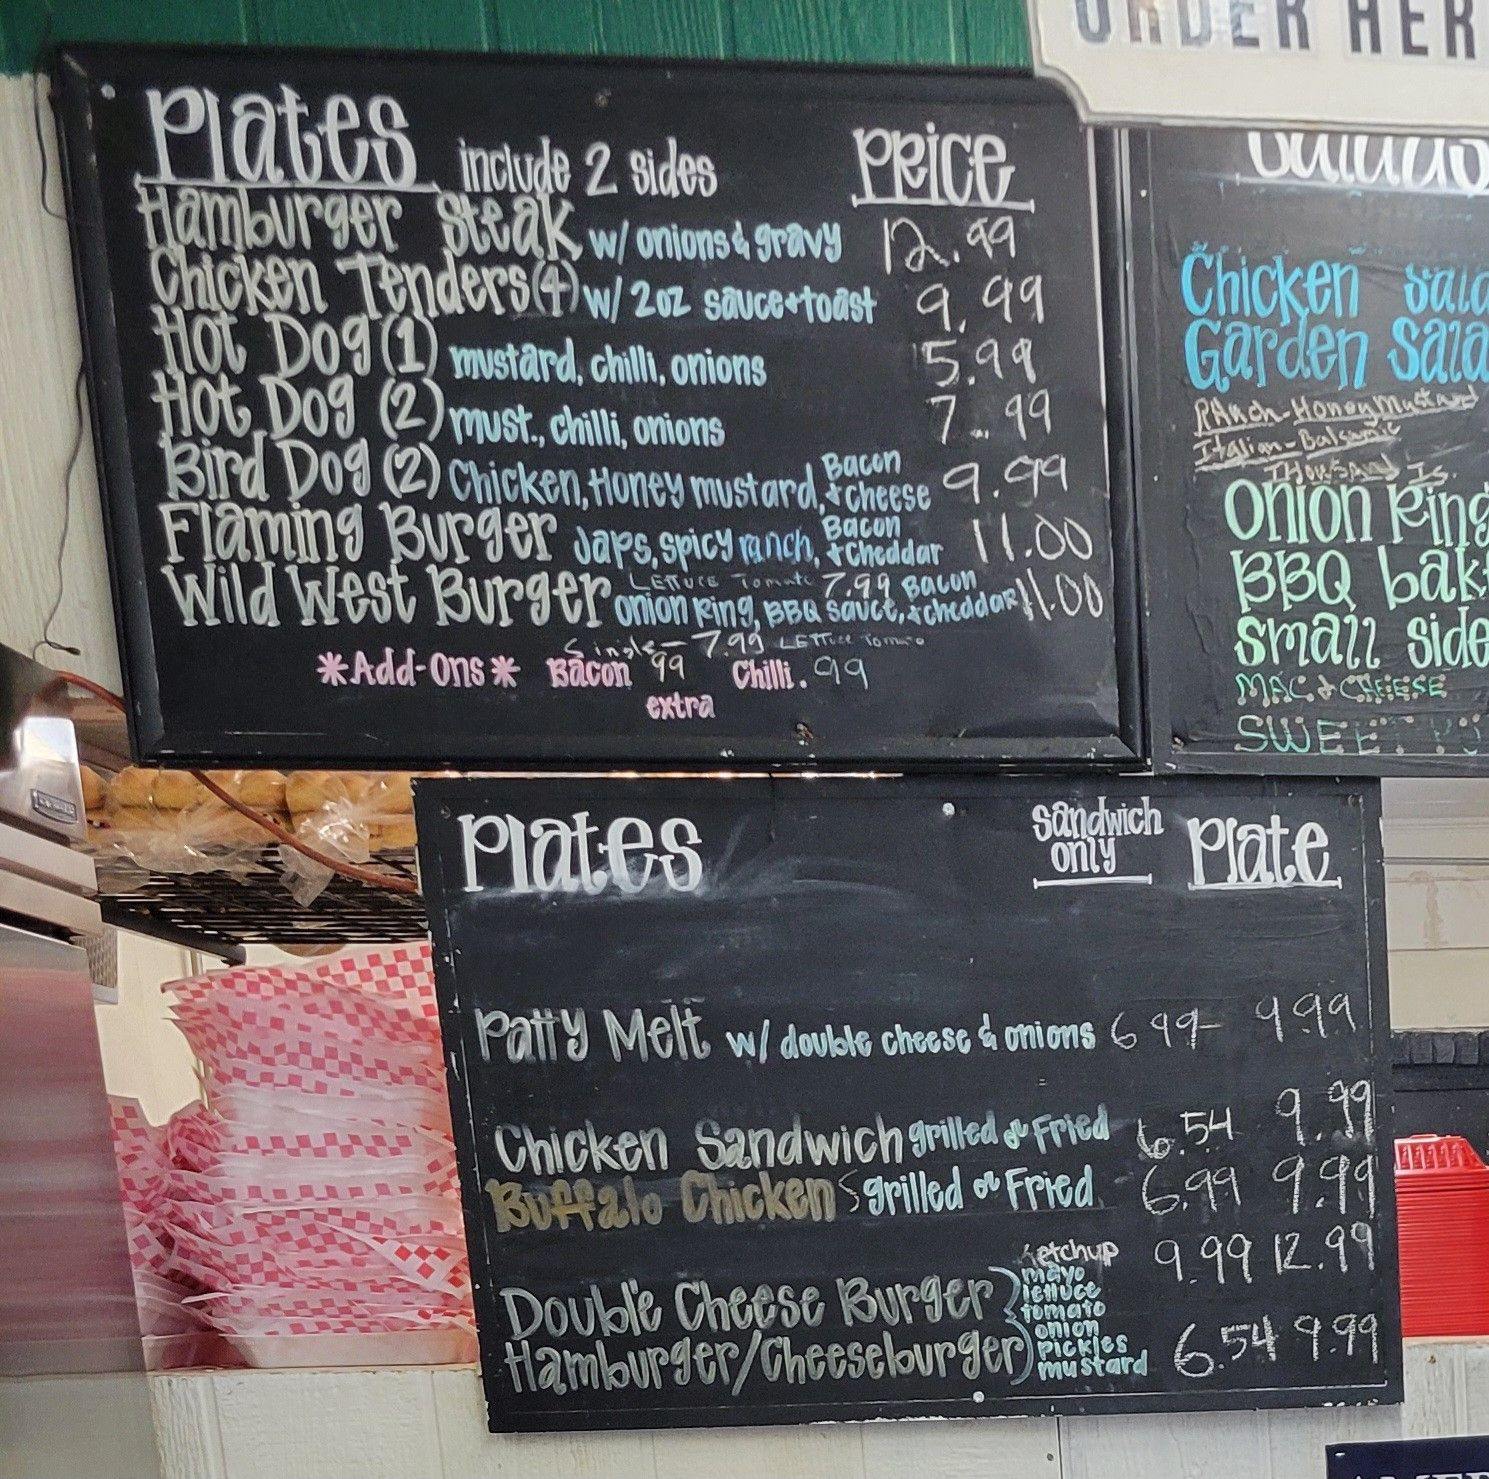 ORDER HER
Plates include 2 sides PRICE
Hamburger Steak w/ onions & gravy 12.99
Chicken Tenders (4) w/ 2oz sauce + toast 9.99
Hot Dog (1) mustard, chilli, onions 5.99
Hot Dog (2) must., chilli, onions 7.99
Bird Dog (2) Chicken, Honey mustard, Bacon + cheese 9.99
Flaming Burger Japs, spicy ranch, Bacon + Cheddar 11.00
LETTUCE Tomato 7.99
Wild West Burger onion Ring, BBQ sauce, Bacon + cheddar 11.00
Single - 7.99 LETTUCE Tomato
*Add-Ons* Bacon 99 Chilli .99
extra
Salads
Chicken Sala
Garden Sala
RAnch-Honey Mustard
Italian-Balsamic
THOUSAND Is.
Onion Ring
BBQ bak
small side
MAC & CHEESE
SWEET
Plates sandwich only Plate
Patty Melt w/ double cheese & onions 6 99 9 99
Chicken Sandwich grilled or Fried 6.54 9.99
Buffalo Chicken S grilled or Fried 6.99 9.99
Double Cheese Burger 9.99 12.99
Hamburger/Cheeseburger 6.54 9.99
ketchup
mayo
lettuce
tomato
onion
pickles
mustard